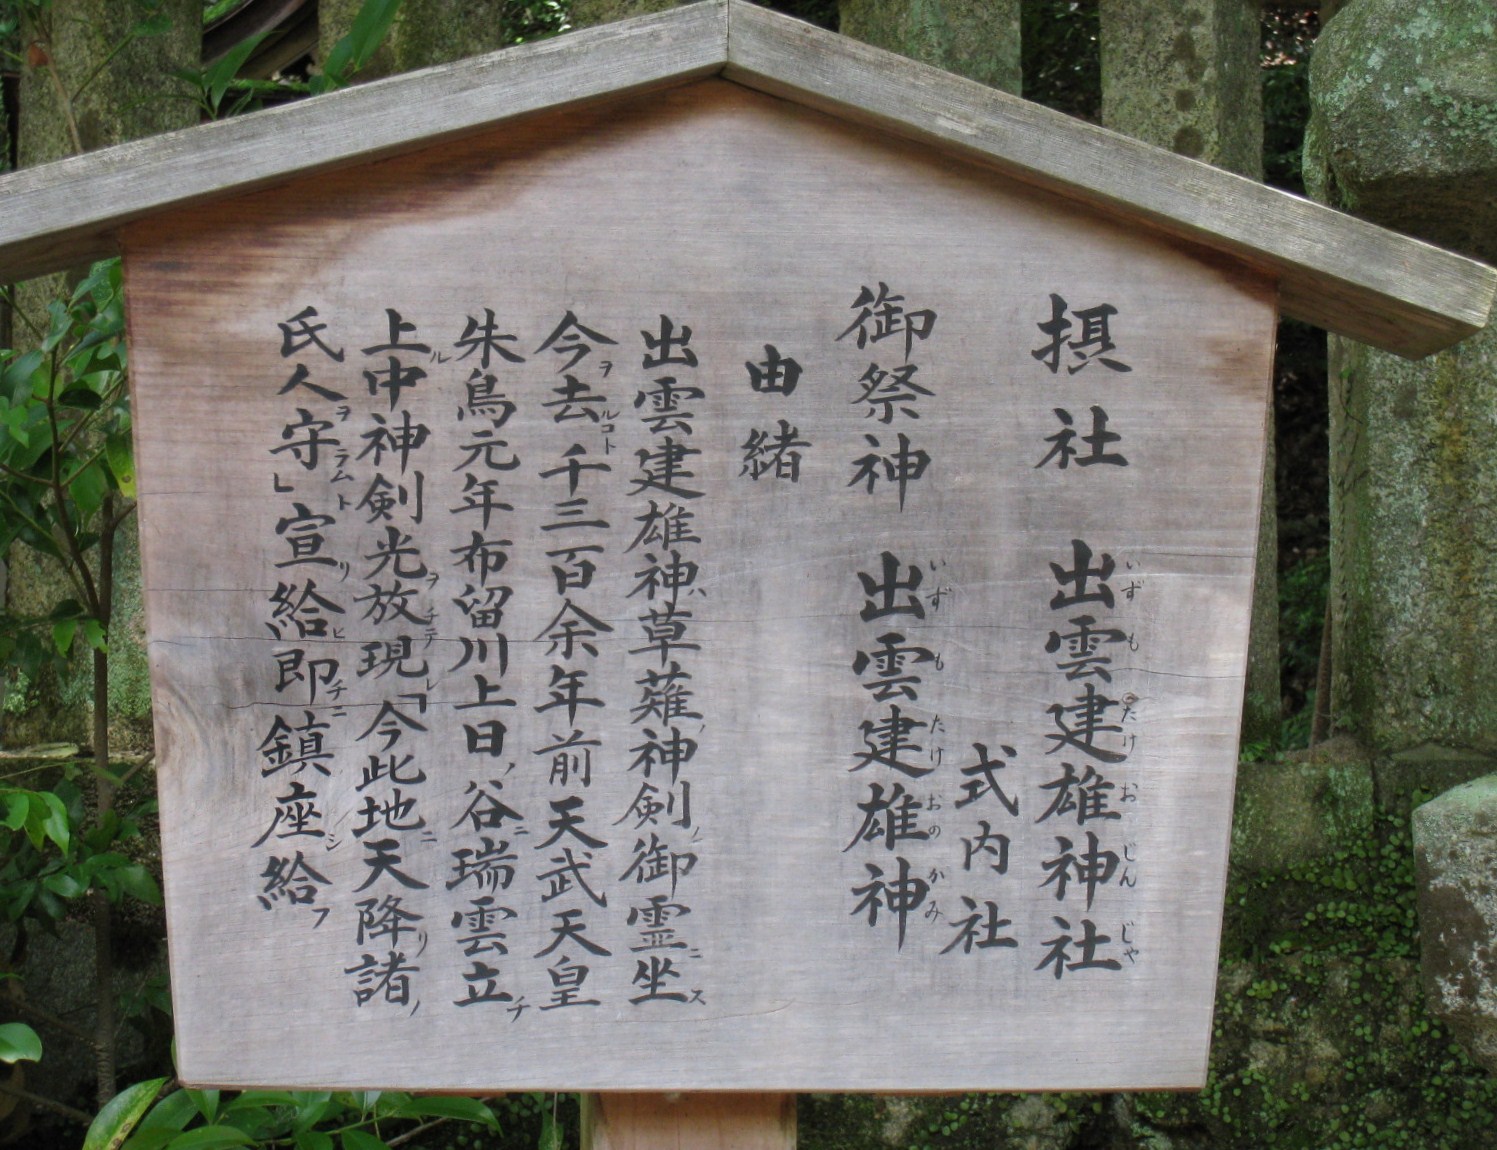 摂社 出雲建雄神社
いずもたけおじんじゃ
式内社
御祭神 出雲建雄神
いずもたけおのかみ
由緒
出雲建雄神ハ草薙ノ神剣ノ御霊ニ坐ス
今ヲ去ルコト千三百余年前天武天皇
朱鳥元年布留川上日ノ谷ニ瑞雲立チ
上ル中神剣光ヲ放チテ現レ「今此地ニ天降リ諸ノ
氏人ヲ守ラムト」宣リ給ヒ即チニ鎮座シ給フ